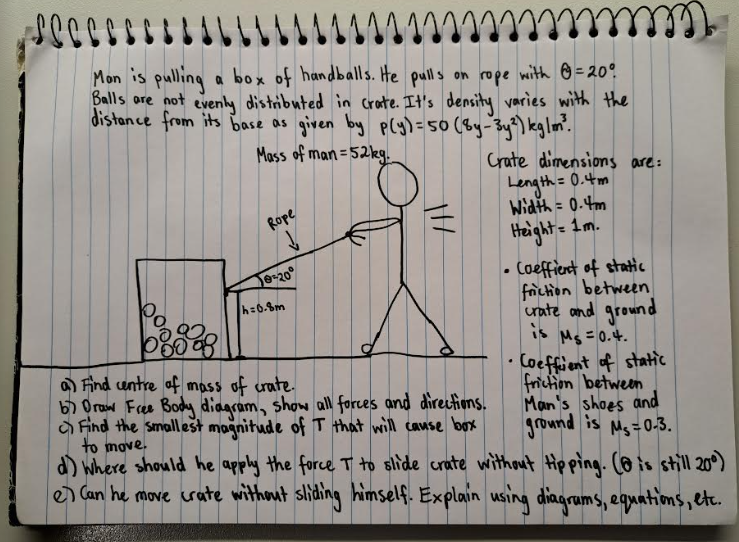 Man is pulling a box of handballs. He pulls on rope with θ=20°.
Balls are not evenly distributed in crate. It's density varies with the
distance from its base as given by ρ(y)=50(8y-3y²)kg/m³.
Mass of man=52kg.
Crate dimensions are:
Length=0.4m
Width=0.4m
Height=1m.
Rope
θ=20°
h=0.8m
• Coeffient of static
friction between
crate and ground
is Ms=0.4.
• Coeffient of static
friction between
Man's shoes and
ground is Ms=0.3.
a) Find centre of mass of crate.
b) Draw Free Body diagram, show all forces and directions.
c) Find the smallest magnitude of T that will cause box
to move.
d) Where should he apply the force T to slide crate without tipping. (θ is still 20°)
e) Can he move crate without sliding himself. Explain using diagrams, equations, etc.